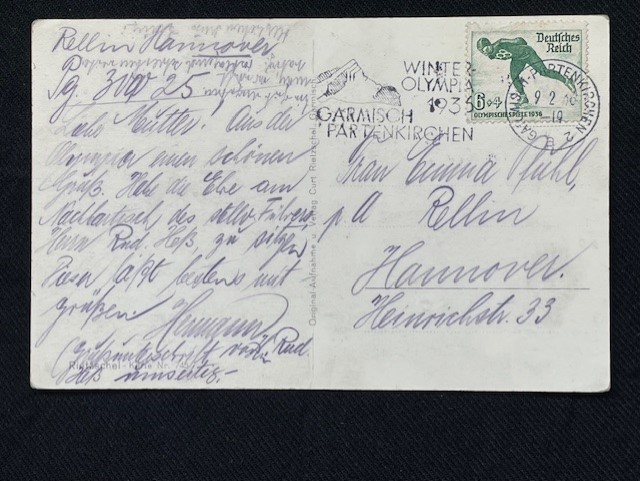 Rellin Hannover
Liebe Mutter! Aus der
Olympia einen schönen
Gruß. Habe die Ehre am
Nachbartisch des stellv. Führers
Herrn Rud. Heß, zu sitzen
Papa läßt bestens mit-
grüßen. Hermann
Rud
Heß umseitig.-
Rietzschel-Karte Nr.
Original Aufnahme u. Verlag Curt Rietzschel, Garmisch
WINTER-
OLYMPIA
1936
GARMISCH
PARTENKIRCHEN
Deutsches
Reich
6+4
OLYMPISCHE SPIELE 1936
GARMISCH-PARTENKIRCHEN 2
9.2.36
-19
B
Frau Emma Pfuhl,
p A Rellin
Hannover.
Heinrichstr. 33